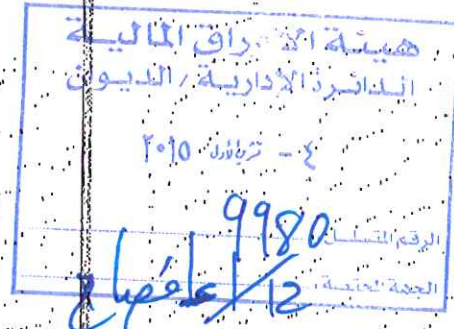 هيئة الأوراق المالية
الدائرة الإدارية / الديوان
٤ - تشرين الأول ٢٠١٥
الرقم المتسلسل 9980
الجهة المختصة 12/ الإفصاح